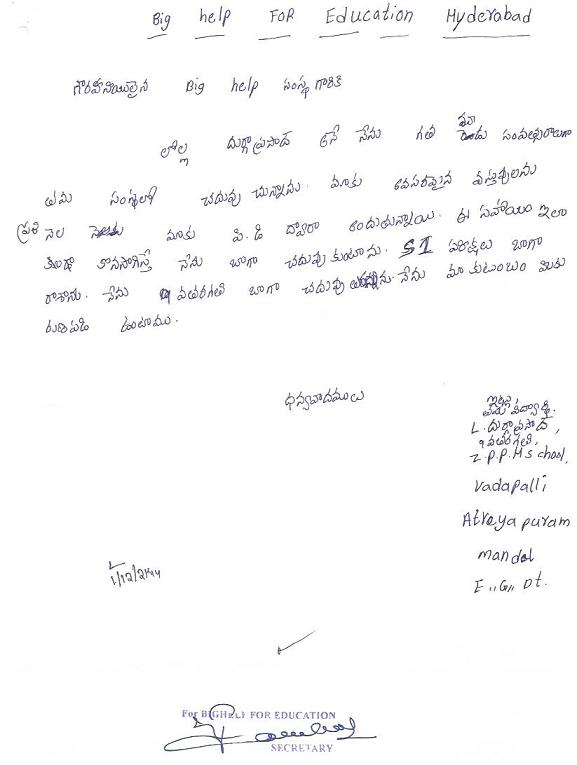 Big help FOR Education Hyderabad
గౌరవనీయులైన Big help సంస్థ గారికి
లోల్ల దుర్గాప్రసాద్ అనే నేను గత మూడు సంవత్సరాలుగా
తమ సంస్థలో చదువు చున్నాను. మాకు అవసరమైన వస్తువులను
ప్రతి నెల మాకు పి.డి ద్వారా అందుతున్నాయి. ఈ సహాయం ఇలా
కొనసాగిస్తే నేను బాగా చదువు కుంటాను. SI పరీక్షలు బాగా
రాశాను. నేను 9 వతరగతి బాగా చదువు నేను మా కుటుంబం మీకు
రుణపడి ఉంటాము.
ధన్యవాదములు
ఇట్లు,
తమ విద్యార్థి,
L. దుర్గాప్రసాద్,
9 వతరగతి,
Z.P.P.H School,
Vadapalli
Atreyapuram
mandal
E,,G,, Dt.
For BIGHELP FOR EDUCATION
SECRETARY